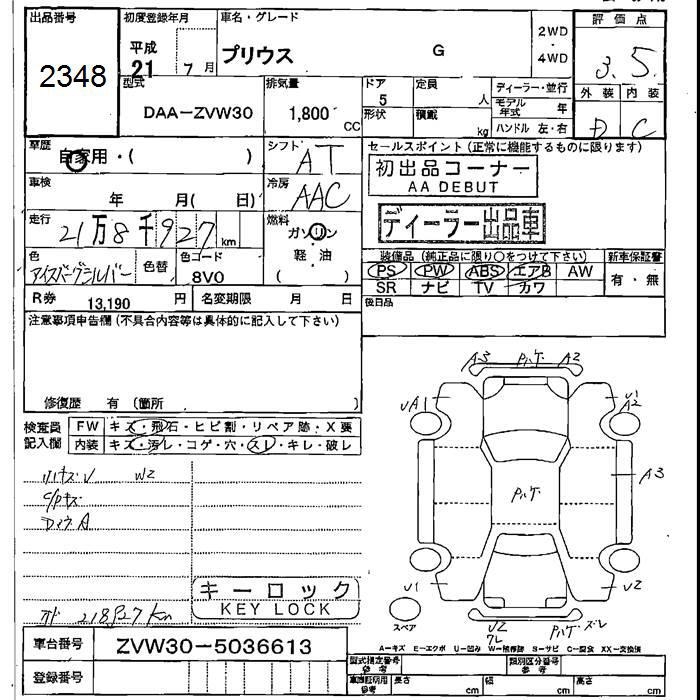 出品番号
2348
初度登録年月
平成
21
7月
車名・グレード
プリウス
G
2WD
・
4WD
評価点
3.5
外装 内装
D C
型式
DAA-ZVW30
排気量
1,800
CC
ドア
5
形状
定員
人
積載
kg
ディーラー・並行
モデル年式 年
ハンドル 左・右
車歴
自家用・( )
シフト
AT
車検
年 月( 日)
冷房
AAC
走行
21万8千927km
燃料
ガソリン
軽油
( )
色
アイスバーグシルバー
色替
色コード
8V0
R券 13,190 円
名変期限 月 日
セールスポイント(正常に機能するものに限ります)
初出品コーナー
AA DEBUT
ディーラー出品車
装備品(純正品に限り○をつけて下さい)
PS PW ABS エアB AW
SR ナビ TV カワ
新車保証書
有・無
後日品
注意事項申告欄(不具合内容等は具体的に記入して下さい)
修復歴 有(箇所 )
検査員
記入欄
FW キズ・飛石・ヒビ割・リペア跡・X要
内装 キズ・汚レ・コゲ・穴・スレ・キレ・破レ
W2
キーロック
KEY LOCK
車台番号 ZVW30-5036613
登録番号
A3 ハゲ A2
UA1
U1
A2
A3
ハゲ
U1
U2
スペア
U2
ワレ
ハゲ ズレ
A-キズ E-エクボ U-凹み W-補修跡 S-サビ C-腐食 XX-交換済
型式指定番号
参考
類別区分番号
参考
車庫証明用
参考
長さ cm 幅 cm 高さ cm